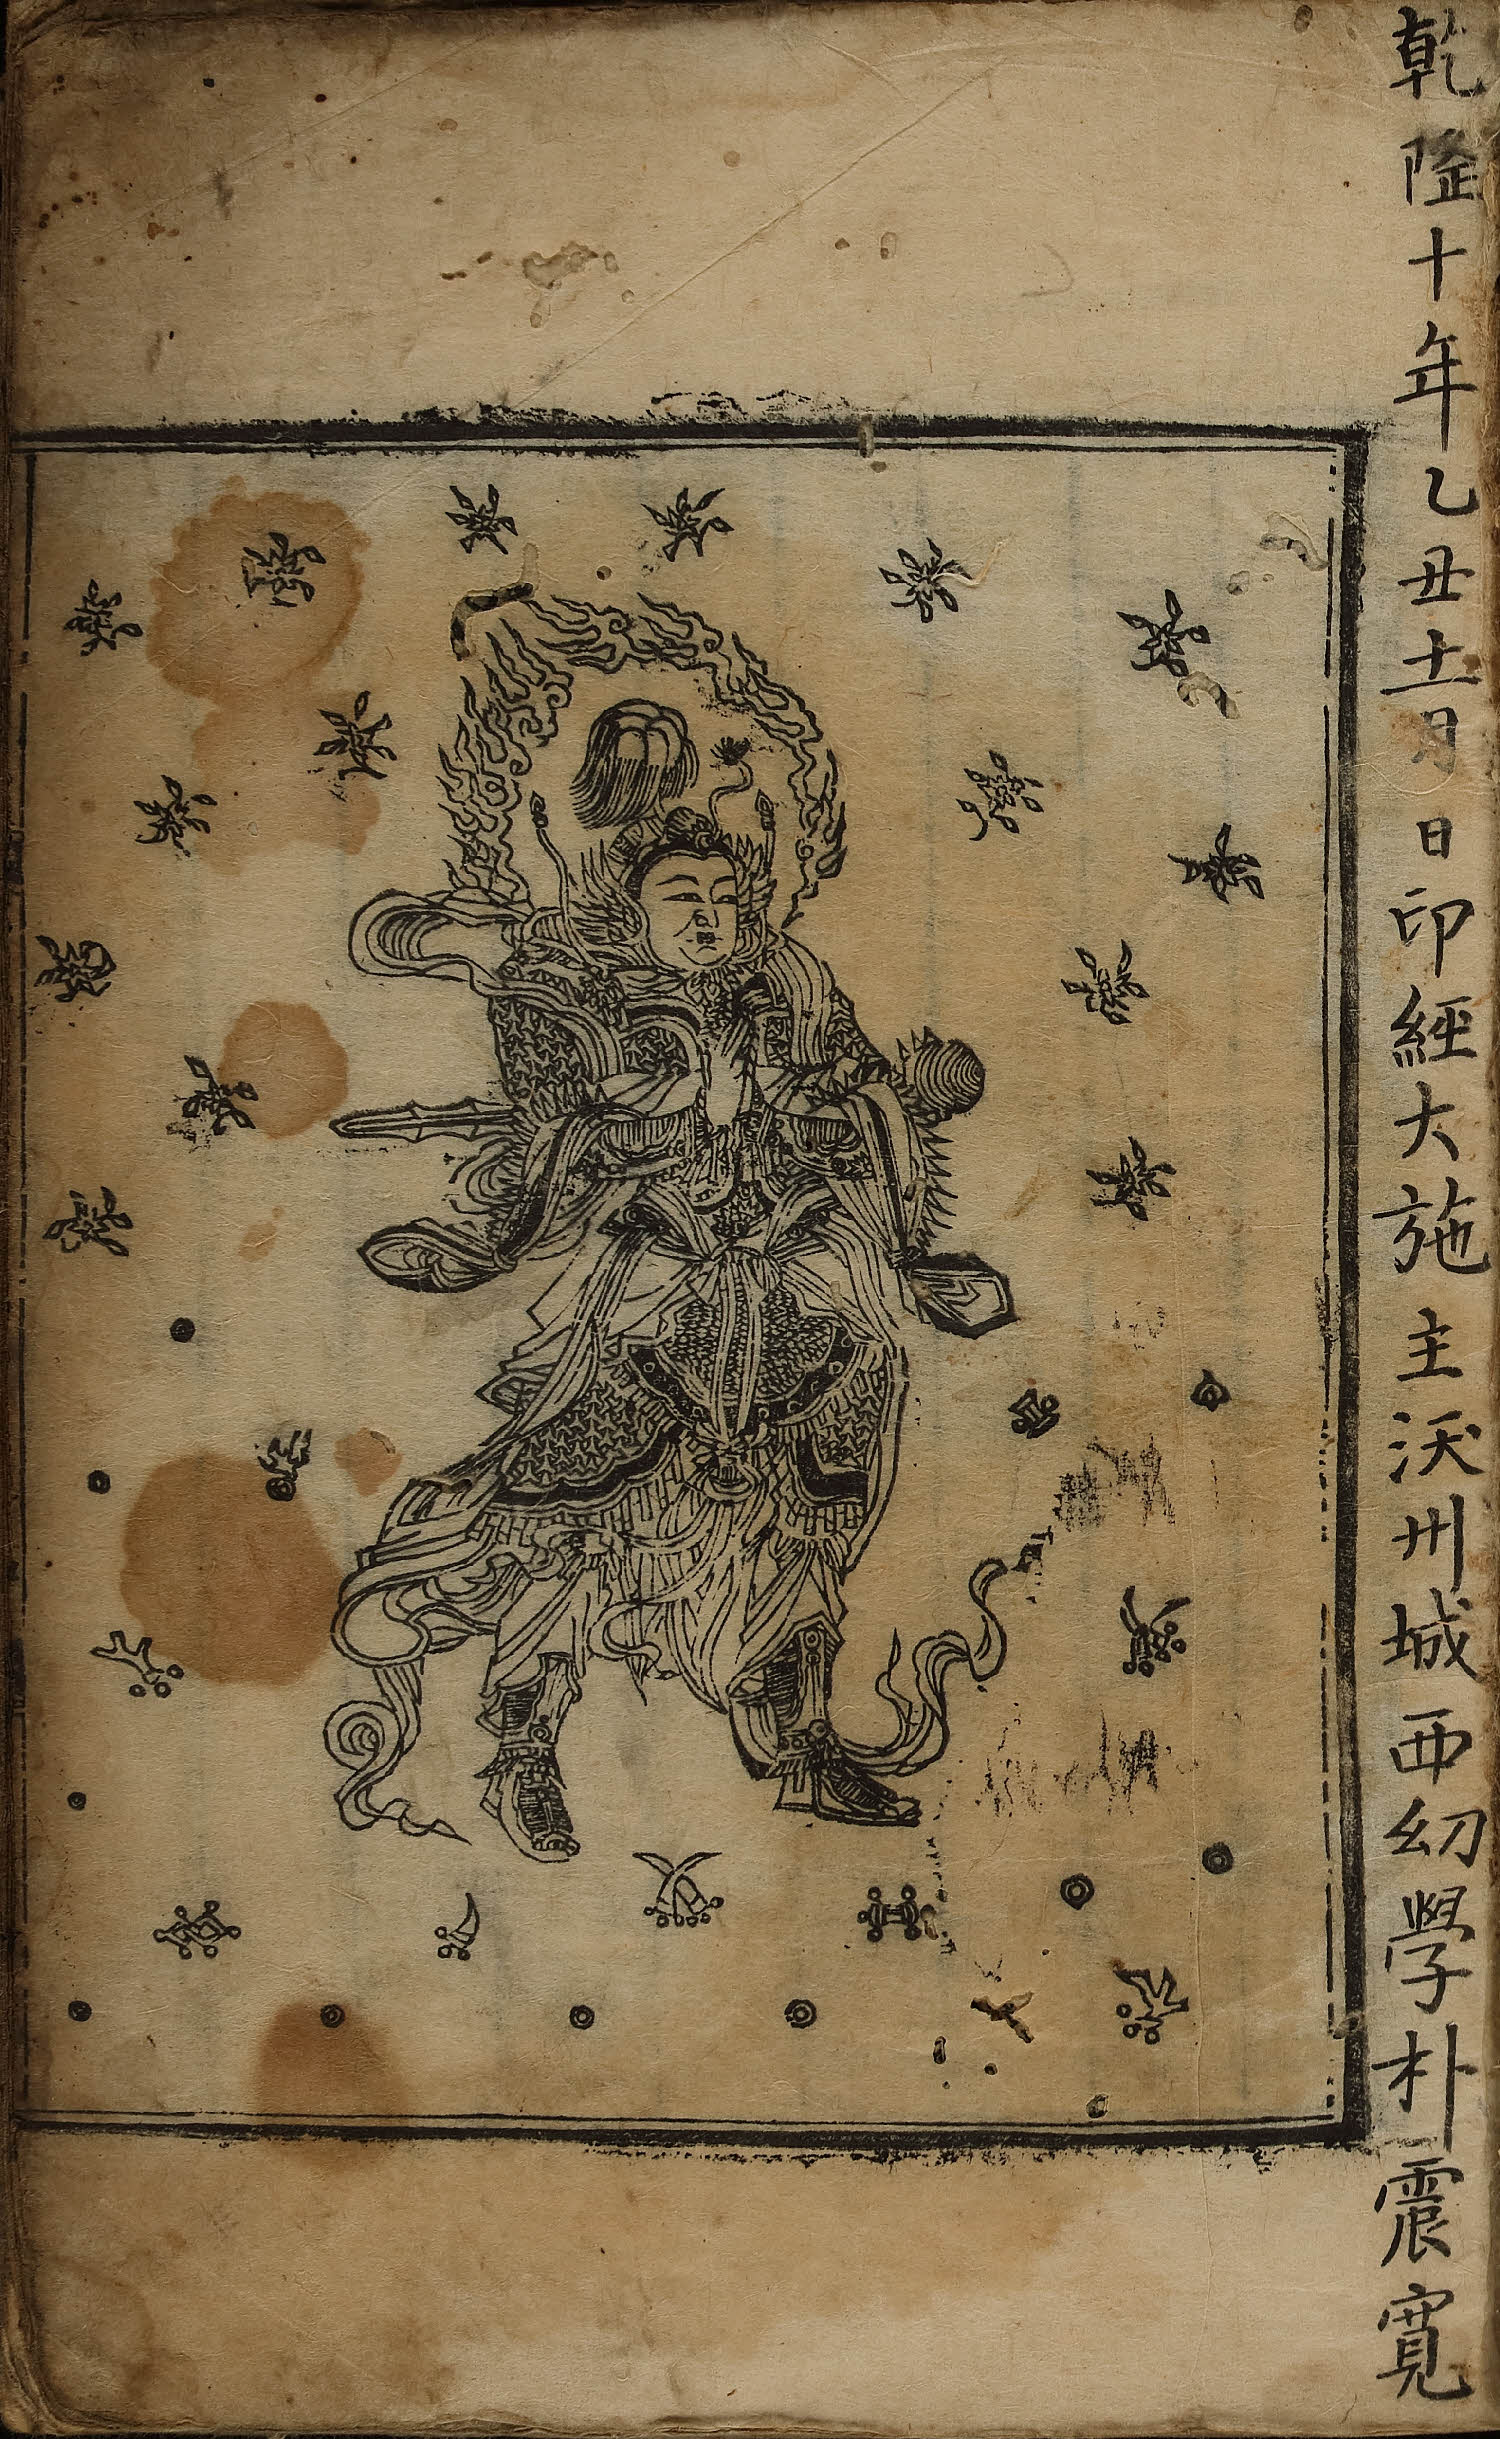 乾隆十年乙丑十一月日印經大施主沃州城西幼學朴震寬